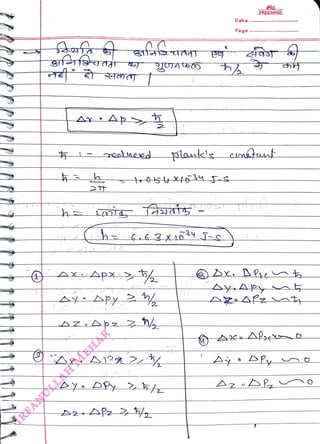 Date
Page
→ स्थिति की अनिश्चितता एवं संवेग की
अनिश्चितता का गुणनफल ħ/2 से कम
नहीं हो सकता।
Δr · Δp ≥ ħ/2
ħ :- reduced plank's constant
ħ = h/2π = 1.054 × 10⁻³⁴ J-S
h = प्लांक नियतांक -
h = 6.63 × 10⁻³⁴ J-S
① Δx. Δpx ≥ ħ/2
Δy. Δpy ≥ ħ/2
Δz. Δpz ≥ ħ/2
Δx. Δpx ≥ ħ/2
Δy. Δpy ≥ ħ/2
Δz. Δpz ≥ ħ/2
Δx. Δpx ~ ħ
Δy. Δpy ~ ħ
Δz. Δpz ~ ħ
Δx. Δpx ~ 0
Δy. Δpy ~ 0
Δz. Δpz ~ 0
IRFANULLAH MEHAR